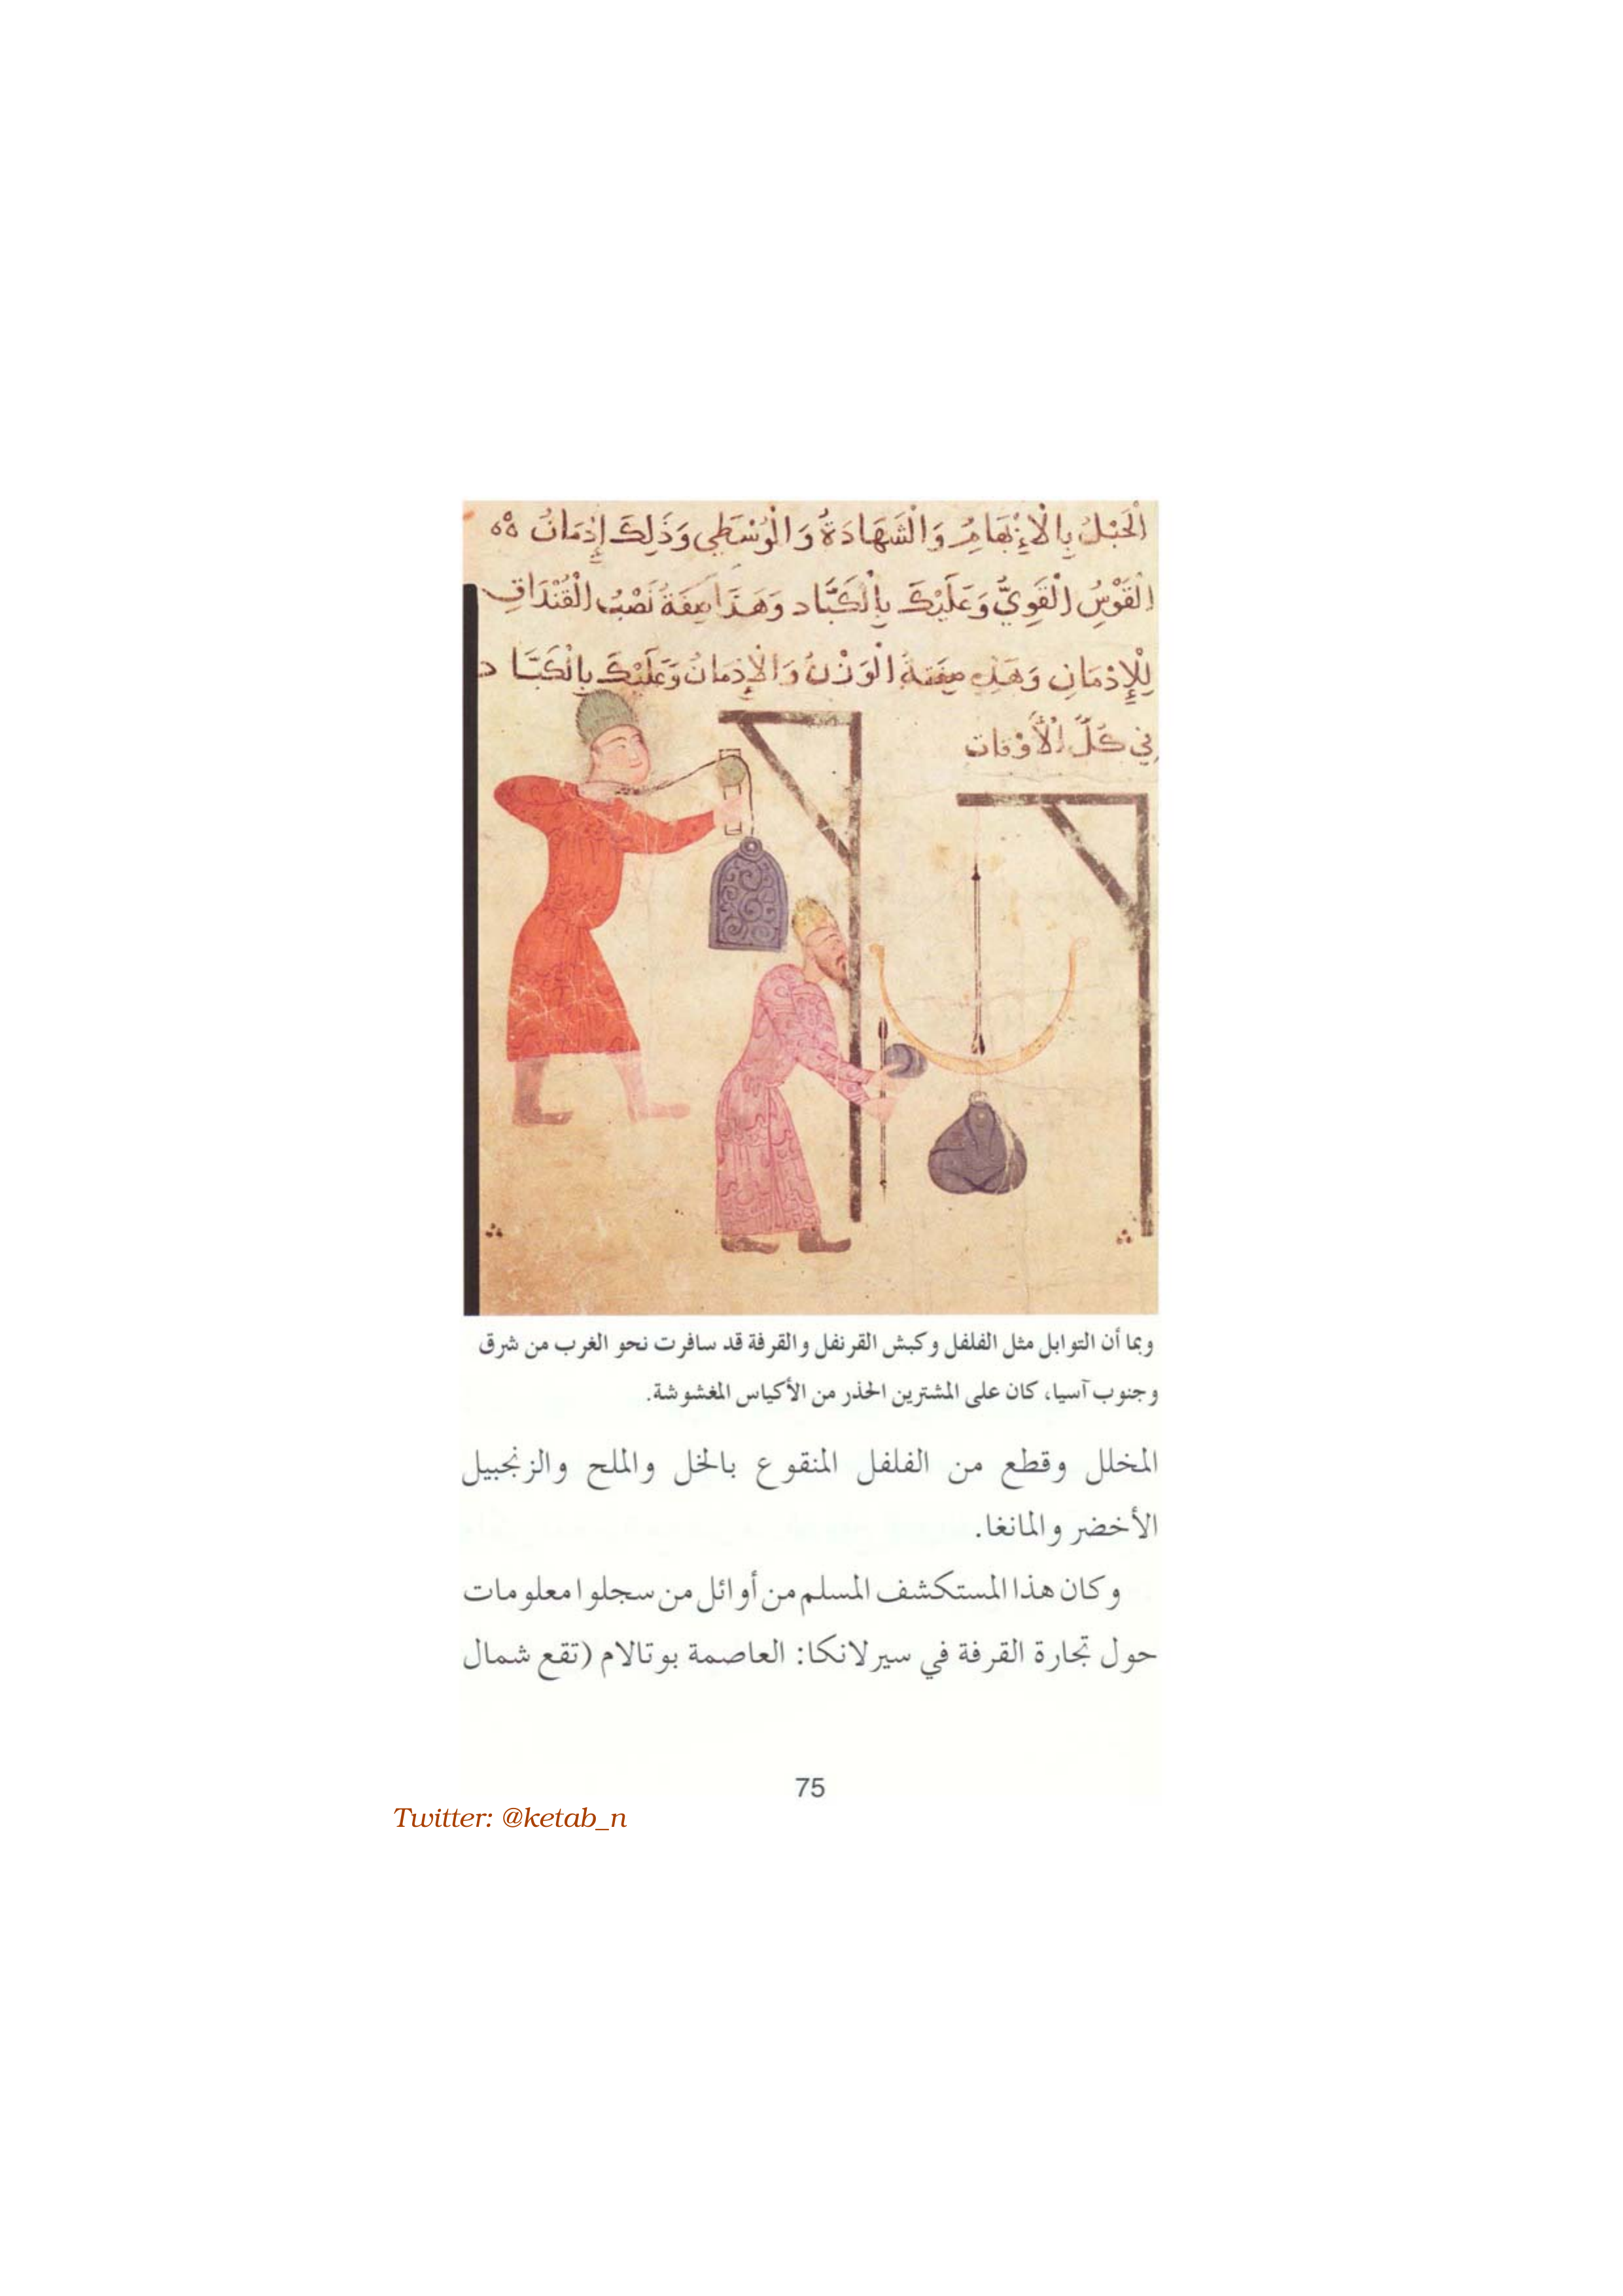 الْحَبْلُ بِالْإِبْهَامِ وَالشَّهَادَةُ وَالْوُسْطَى وَذَلِكَ إِدْمَانُ
الْقَوْسُ الْقَوِيُّ وَعَلَيْكَ بِالْكَبَّاد وَهَذَا صِفَةُ نَصْبُ الْقُنْدَاقِ
لِلْإِدْمَانِ وَهَذِهِ صِفَةُ الْوَزْنُ وَالْإِدْمَانُ وَعَلَيْكَ بِالْكَبَّاد
فِي كُلِّ الْأَوْقَات
وبما أن التوابل مثل الفلفل وكبش القرنفل والقرفة قد سافرت نحو الغرب من شرق
وجنوب آسيا، كان على المشترين الحذر من الأكياس المغشوشة.
المخلل وقطع من الفلفل المنقوع بالخل والملح والزنجبيل
الأخضر والمانغا.
وكان هذا المستكشف المسلم من أوائل من سجلوا معلومات
حول تجارة القرفة في سيرلانكا: العاصمة بوتالام (تقع شمال
75
Twitter: @ketab_n